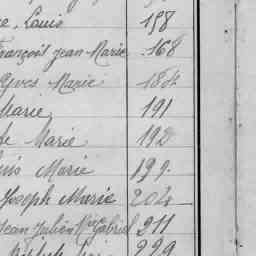 Louis 158
François Jean Marie 168
Yves Marie 184
Marie 191
Marie 192
Marie 199
Joseph Marie 204
Jean Julien Mie Gabriel 211
229